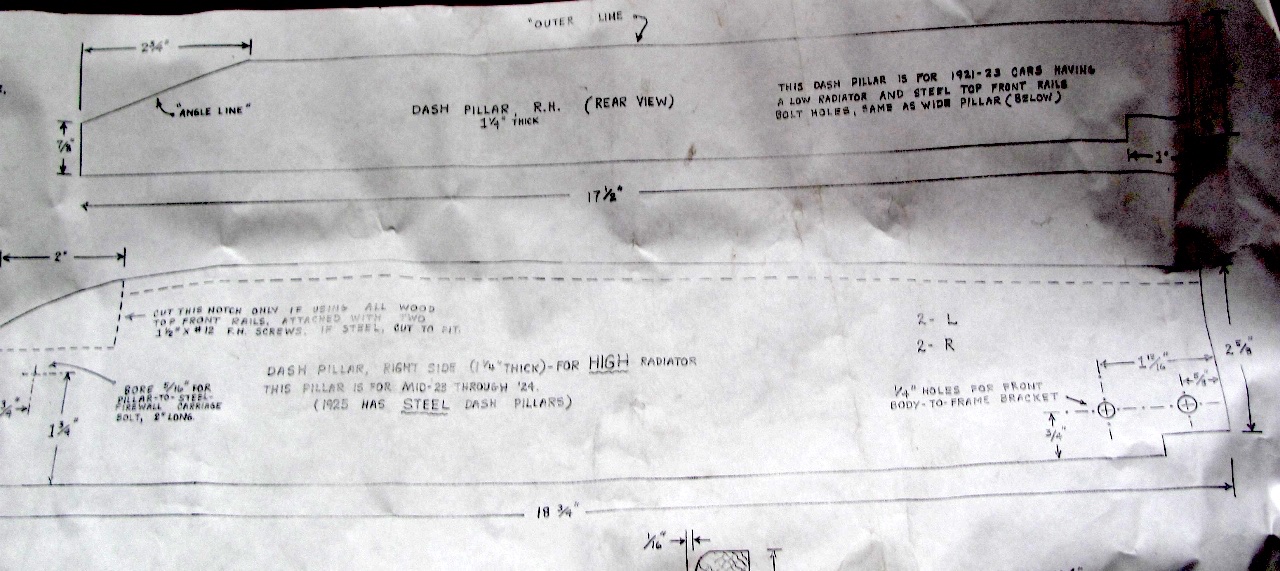 "OUTER LINE"
2 3/4"
"ANGLE LINE"
7/8"
DASH PILLAR, R.H. (REAR VIEW)
1 1/4" THICK
THIS DASH PILLAR IS FOR 1921-23 CARS HAVING
A LOW RADIATOR AND STEEL TOP FRONT RAILS
BOLT HOLES, SAME AS WIDE PILLAR (BELOW)
1"
17 1/2"
2"
CUT THIS NOTCH ONLY IF USING ALL WOOD
TOP FRONT RAILS, ATTACHED WITH TWO
1 1/2" X #12 F.H. SCREWS. IF STEEL, CUT TO FIT.
DASH PILLAR, RIGHT SIDE (1 1/4" THICK)-FOR HIGH RADIATOR
THIS PILLAR IS FOR MID-23 THROUGH '24.
(1925 HAS STEEL DASH PILLARS)
BORE 5/16" FOR
PILLAR-TO-STEEL-
FIREWALL CARRIAGE
BOLT, 2" LONG.
1 3/4"
2- L
2- R
1/4" HOLES FOR FRONT
BODY-TO-FRAME BRACKET
3/4"
5/8"
2 5/8"
18 3/4"
1/16"